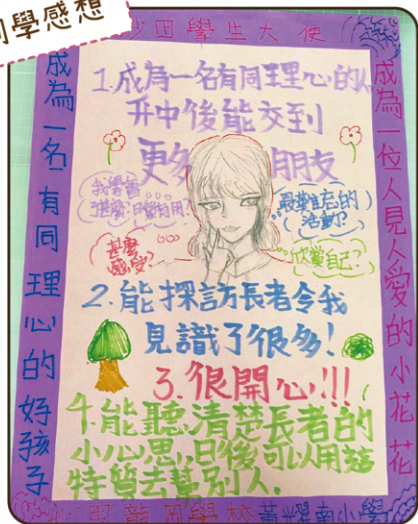 同學感想
沙田學生大使
成為一名有同理心的好孩子
成為一位人見人愛的小花花
1.成為一名有同理心的人
升中後能交到
更多 朋友
我學會
了甚麼?日後有用?
最難忘的
活動?
甚麼
感受?
欣賞自己?
2.能探訪長者令我
見識了很多!
3.很開心!!!
4.能聽清楚長者的
小心思,日後可以用這
特質去幫別人.
黃耀南小學